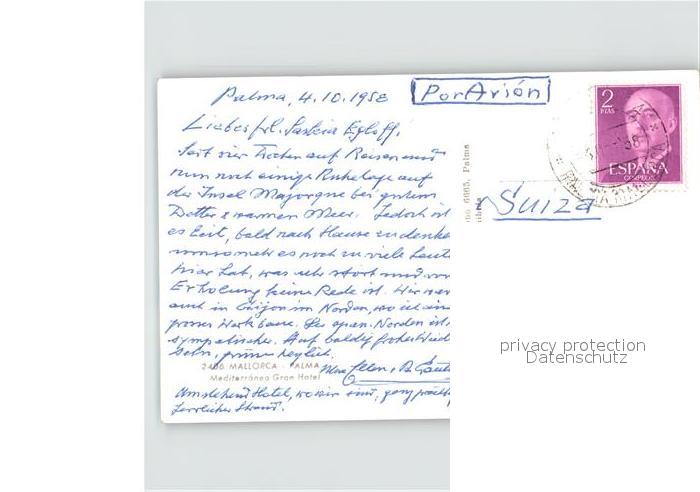 Palma, 4.10.1958
PorAvión
2
PTAS
ESPAÑA
CORREOS
Suiza
Liebes Frl. Saskia Egloff,
Seit vier Wochen auf Reisen und
nun noch einige Ruhetage auf
der Insel Majorque bei gutem
Wetter & warmen Meer. Jedoch ist
es Zeit, bald nach Hause zu denken
umsomehr es noch zu viele Leute
hier hat, was sehr stört und von
Erholung keine Rede ist. Wir waren
auch in Gijon im Norden, wo ich ein
grosses Werk baue. Der span. Norden ist
sympatischer. Auf baldig frohes Wied
sehn, grüsse herzlich
2466 MALLORCA - PALMA
Mediterráneo Gran Hotel
Umstehend Hotel, wo wir sind, ganz
herrlicher Strand.
Palma
privacy protection
Datenschutz